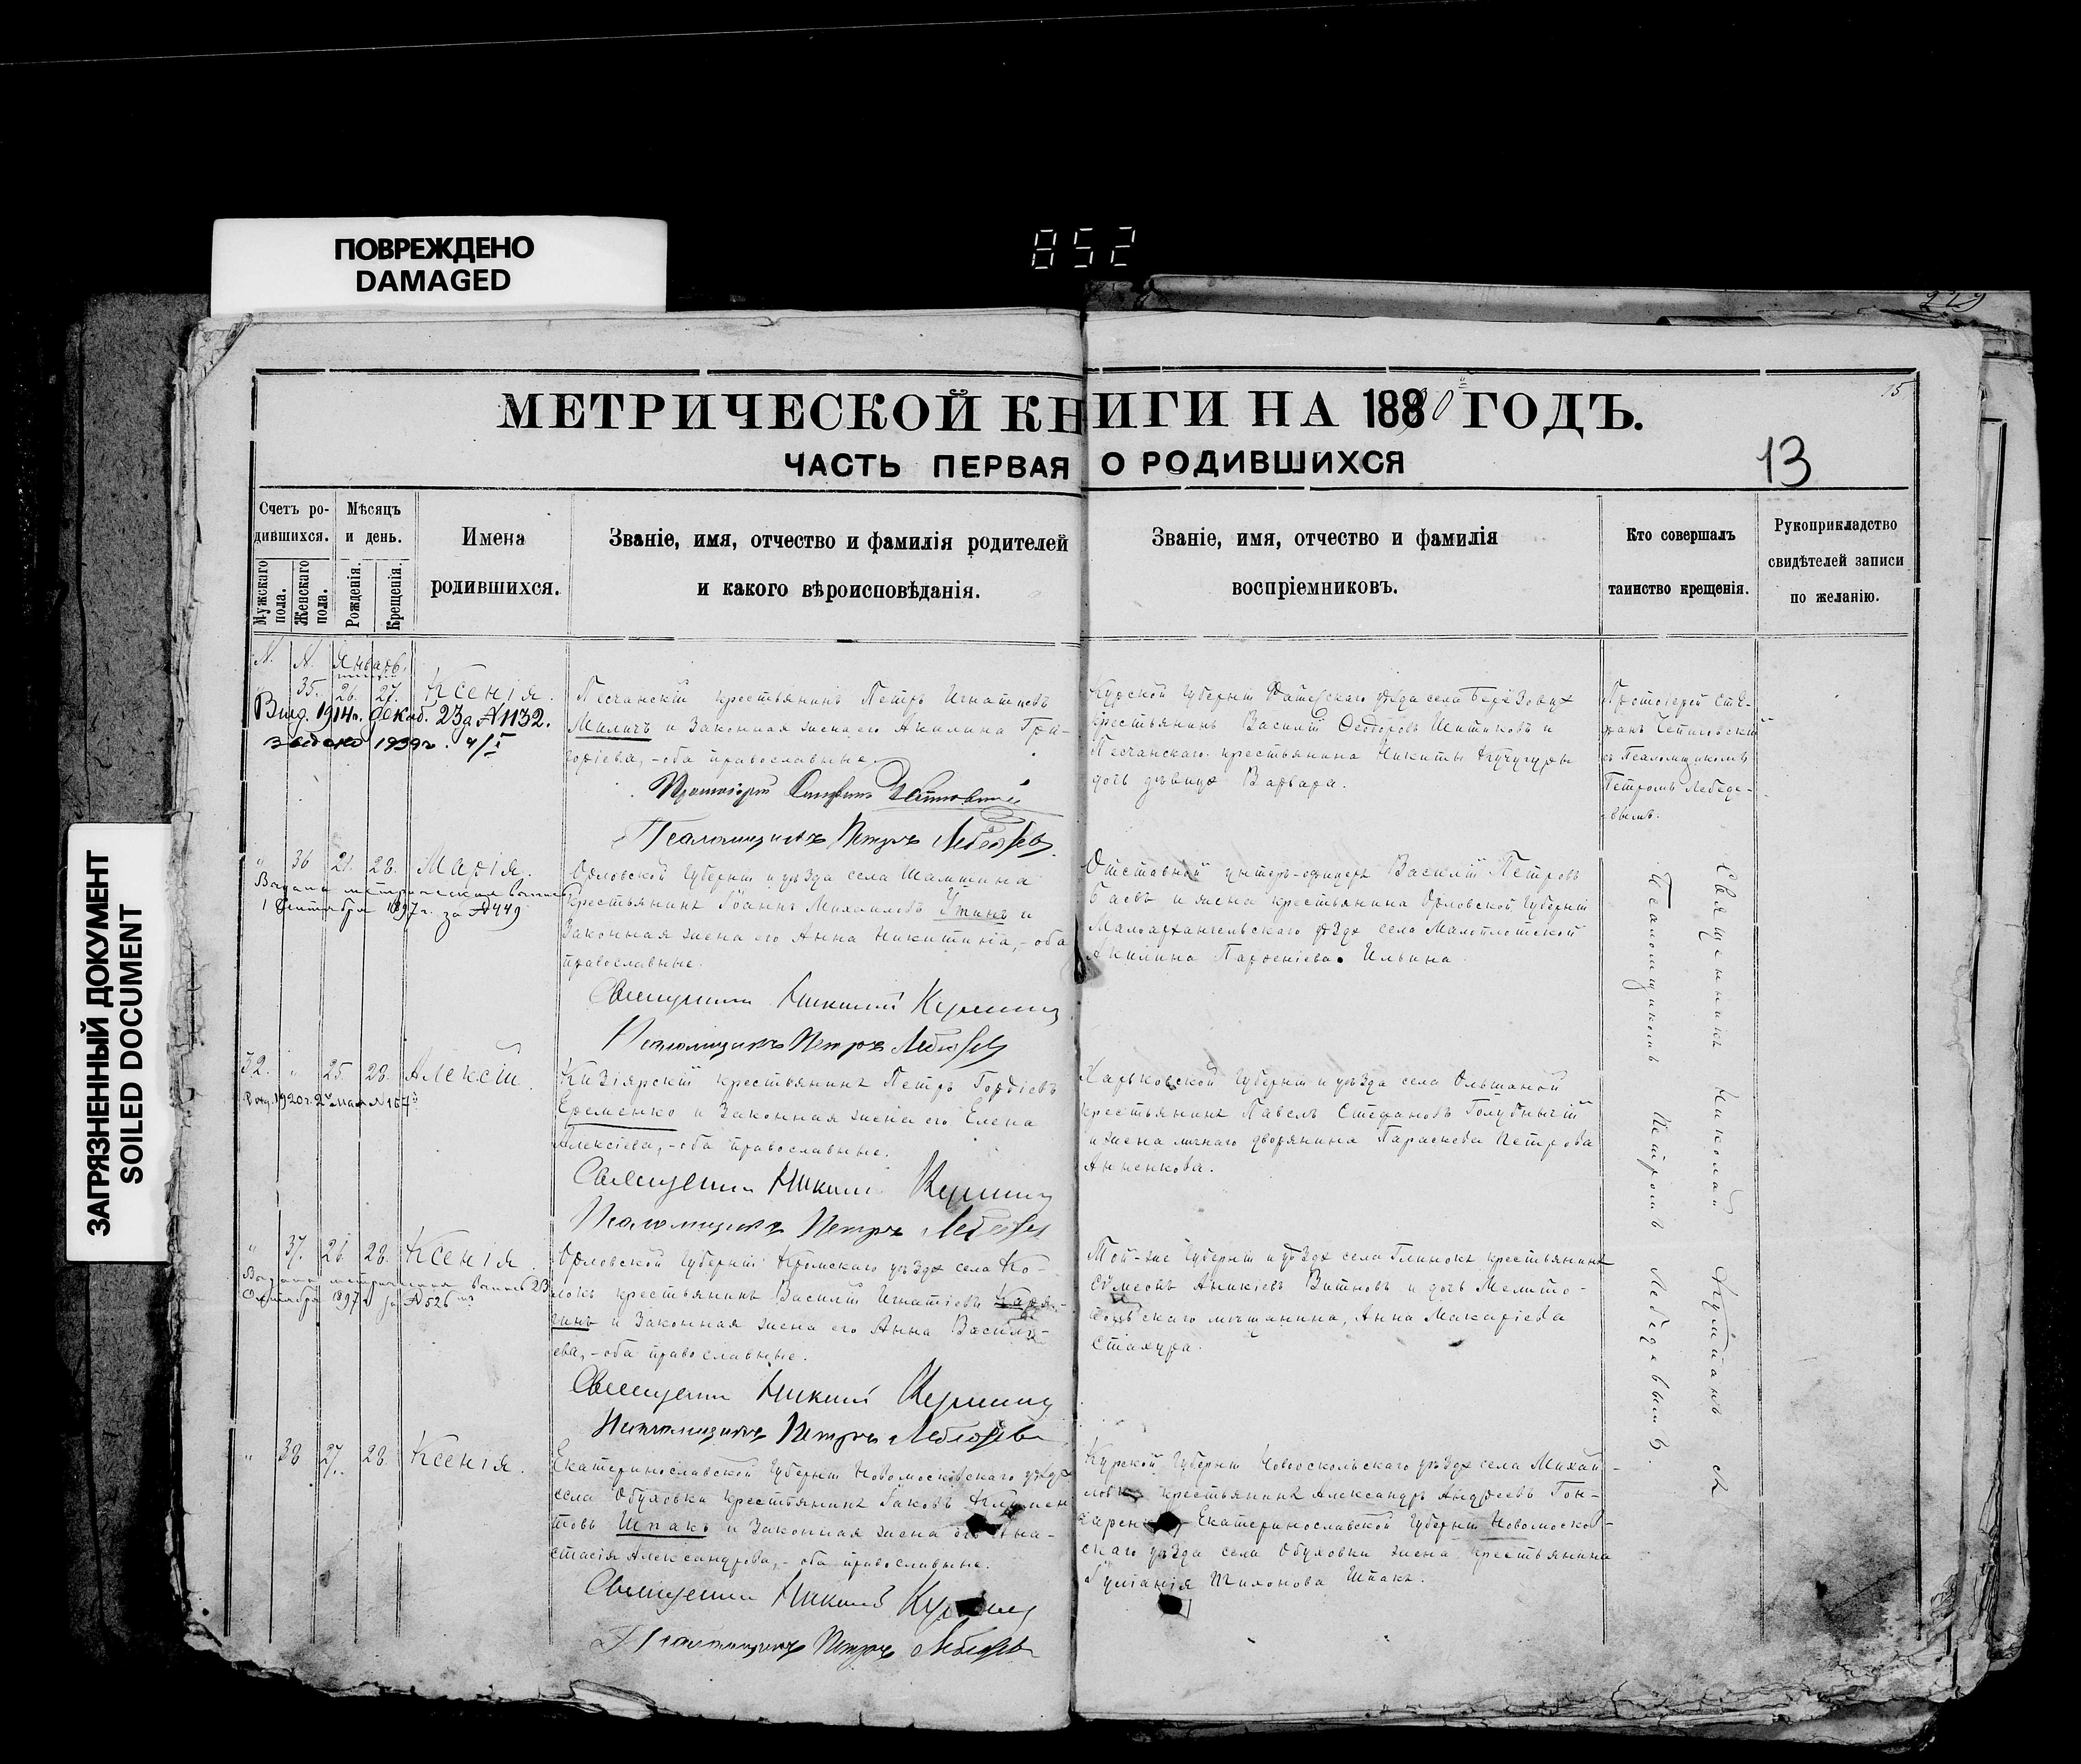 852
ПОВРЕЖДЕНО
DAMAGED
ЗАГРЯЗНЕННЫЙ ДОКУМЕНТ
SOILED DOCUMENT
229
15
МЕТРИЧЕСКОЙ КНИГИ НА 1890 ГОДЪ.
ЧАСТЬ ПЕРВАЯ О РОДИВШИХСЯ
13
Счетъ ро-
дившихся.
Мужскаго пола.
Женскаго пола.
Мѣсяцъ
и день.
Рожденія.
Крещенія.
Имена
родившихся.
Званіе, имя, отчество и фамилія родителей
и какого вѣроисповѣданія.
Званіе, имя, отчество и фамилія
воспріемниковъ.
Кто совершалъ
таинство крещенія.
Рукоприкладство
свидѣтелей записи
по желанію.
N. N. Январь
35. 26. 27. Ксенія.
Выд. 1914г. декаб. 23д N1132.
1939г. 4/I
Песчанскій крестьянинъ Петръ Игнатіевъ
Миличъ и законная жена его Акилина Гри-
горіева, - оба православные.
Протоіерей
Псаломщикъ Петръ Лебедевъ
Курской губерніи Фатежскаго уѣзда села
крестьянинъ Василій Ѳеодоровъ Шитиковъ и
Песчанскаго крестьянина Никиты
дочь дѣвица Варвара.
Протоіерей Сте-
фанъ
съ Псаломщикомъ
Петромъ Лебеде-
вымъ.
" 36 21. 28. Марія.
Выдана метрическая выпись
1 Сентября 1897г. за N449
Орловской губерніи и уѣзда села Шамшина
крестьянинъ Іоаннъ Михаиловъ Утинъ и
законная жена его Анна Никитина, - оба
православные.
Священникъ Николай
Псаломщикъ Петръ Лебедевъ
Отставной унтеръ-офицеръ Василій Петровъ
Баевъ и жена крестьянина Орловской губерніи
Малоархангельскаго уѣзда села
Акилина Парѳеніева Ильина.
32. " 25. 28. Алексій.
1920г. 2 мая N167
Кизіярскій крестьянинъ Петръ Гордіевъ
Еременко и законная жена его Елена
Алексіева, - оба православные.
Священникъ Николай
Псаломщикъ Петръ Лебедевъ
Харьковской губерніи и уѣзда села Ольшаной
крестьянинъ Павелъ Стефановъ Голубничій
и жена личнаго дворянина Параскева Петрова
Анненкова.
" 37. 26. 28. Ксенія.
Выдана метрическая выпись 23
Октября 1897г за N526
Орловской губерніи Кромскаго уѣзда села Ко-
локъ крестьянинъ Василій Игнатіевъ
и законная жена его Анна Василі-
ева, - оба православные.
Священникъ Николай
Псаломщикъ Петръ Лебедевъ
Той-же губерніи и уѣзда села Глинокъ крестьянинъ
Сѵмеонъ Аникіевъ Витновъ и дочь Мелито-
польскаго мѣщанина, Анна Макаріева
Стахура.
" 38 27. 28. Ксенія.
Екатеринославской губерніи Новомосковскаго уѣзда
села Обуховки крестьянинъ Іаковъ Климен
товъ Шпакъ и законная жена его Ана-
стасія Александрова, - оба православные.
Священникъ Николай
Псаломщикъ Петръ Лебедевъ
Курской губерніи Новооскольскаго уѣзда села Михай-
ловки крестьянинъ Александръ Андреевъ Гон-
чаренко, Екатеринославской губерніи Новомосков-
скаго уѣзда села Обуховки жена крестьянина
Іуліанія Тихонова Шпакъ.
Священникъ Николай съ
Псаломщикомъ Петромъ Лебедевымъ.